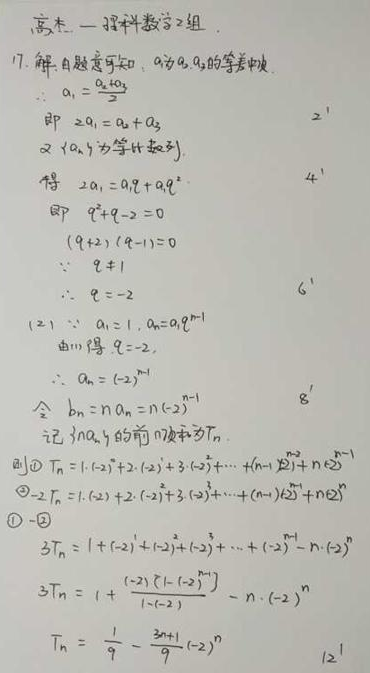 高杰 — 理科数学2组.
17. 解: 由题意可知: a₁为a₂,a₃的等差中项.
∴ a₁ = (a₂+a₃)/2
即 2a₁ = a₂ + a₃ 2'
又 {aₙ}为等比数列.
得 2a₁ = a₁q + a₁q² 4'
即 q²+q-2=0
(q+2)(q-1)=0
∵ q≠1
∴ q=-2 6'
(2) ∵ a₁=1, aₙ=a₁qⁿ⁻¹
由(1)得 q=-2,
∴ aₙ=(-2)ⁿ⁻¹
令 bₙ=naₙ=n(-2)ⁿ⁻¹ 8'
记{naₙ}的前n项和为Tₙ.
则① Tₙ=1·(-2)⁰+2·(-2)¹+3·(-2)²+⋯+(n-1)(-2)ⁿ⁻²+n(-2)ⁿ⁻¹
②-2Tₙ=1·(-2)+2·(-2)²+3·(-2)³+⋯+(n-1)(-2)ⁿ⁻¹+n(-2)ⁿ
①-②
3Tₙ=1+(-2)¹+(-2)²+(-2)³+⋯+(-2)ⁿ⁻¹-n·(-2)ⁿ
3Tₙ = 1 + (-2)[1-(-2)ⁿ⁻¹]/(1-(-2)) - n·(-2)ⁿ
Tₙ = 1/9 - (3n+1)/9 (-2)ⁿ 12'